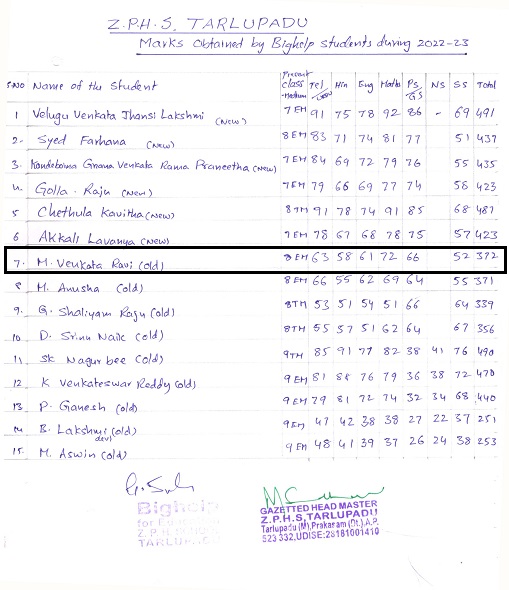 Z.P.H.S, TARLUPADU
Marks Obtained by Bighelp students during 2022-23
S.NO Name of the Student Present class -Medium Tel Hin Eng Maths Ps/GS NS SS Total
1 Velugu Venkata Jhansi Lakshmi (New) 7 EM 91 75 78 92 86 - 69 491
2- Syed Farhana (New) 8 EM 83 71 74 81 77 51 437
3. Kondeboina Gnana Venkata Rama Praneetha (New) 7 EM 84 69 72 79 76 55 435
4. Golla. Raju (New) 7 EM 79 66 69 77 74 58 423
5 Chethula Kavitha (New) 8 TM 91 78 74 91 85 68 487
6 Akkali Lavanya (New) 7 EM 78 67 68 78 75 57 423
7. M. Venkata Ravi (old) 8 EM 63 58 61 72 66 52 372
8 M. Anusha (old) 8 EM 66 55 62 69 64 55 371
9. G. Shaliyam Raju (old) 8TM 53 51 54 51 66 64 339
10 D. Srinu Naik (old) 8TM 55 57 51 62 64 67 356
11 SK Nagur bee (old) 9TM 85 91 77 82 38 41 76 490
12 K Venkateswar Reddy (old) 9 EM 81 88 76 79 36 38 72 470
13. P. Ganesh (old) 9 EM 79 81 72 74 32 34 68 440
14 B. Lakshmi devi (old) 9 EM 47 42 38 38 27 22 37 251
15. M. Aswin (old) 9 EM 48 41 39 37 26 24 38 253
Bighelp
for Education
Z.P.H. School
TARLUPADU
GAZETTED HEAD MASTER
Z.P.H.S, TARLUPADU
Tarlupadu (M), Prakaram (Dt.), A.P.
523 332, UDISE:28181001410